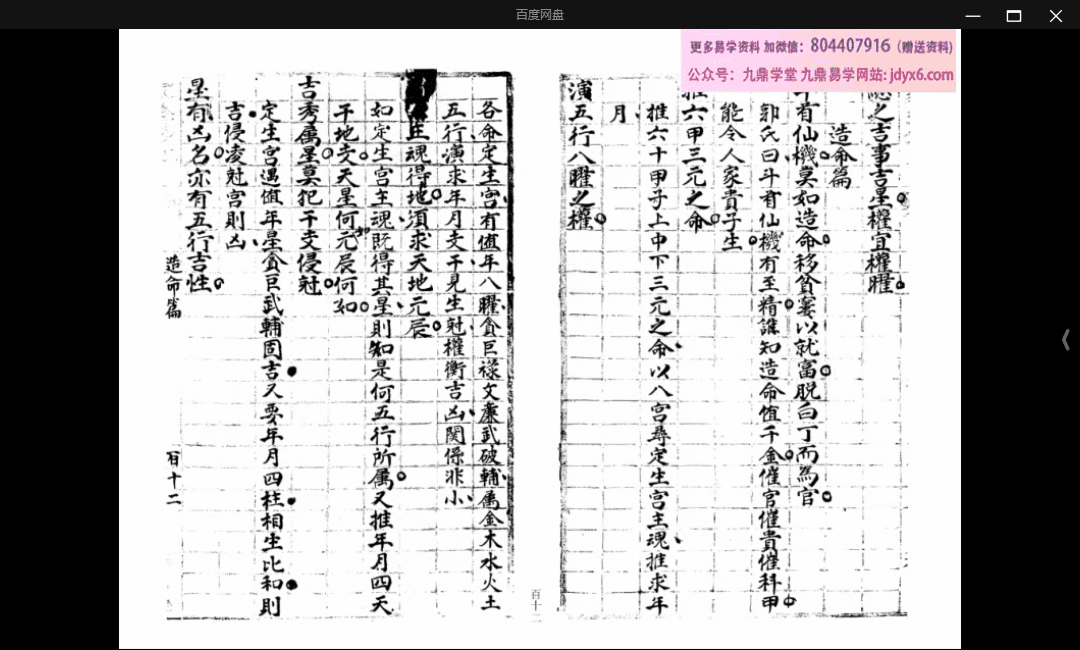 百度网盘
更多易学资料 加微信：804407916（赠送资料)
公众号：九鼎学堂 九鼎易学网站: jdyx6.com
之吉事吉星權宜權曜
造命篇
有仙機莫如造命移貧窶以就富脫白丁而為官
郭氏曰斗有仙機有至精誰知造命值千金催官催貴催科甲
能令人家貴子生
推六甲三元之命
推六十甲子上中下三元之命以八宮尋定生宮主魂推求年
月
演五行八曜之權
百十
各命定生宮有值年八曜貪巨祿文廉武破輔属金木水火土
五行演求年月支干見生尅權衡吉凶関係非小
主魂得地須求天地元辰
如定生宮主魂既得其星則知是何五行所属又推年月四天
干地支天星何元辰何如
吉秀属星莫犯干支侵尅
定生宮遇值年星貪巨武輔固吉又要年月四柱相生比和則
吉侵凌尅宮則凶
星有凶名亦有五行吉性
造命篇
百十二